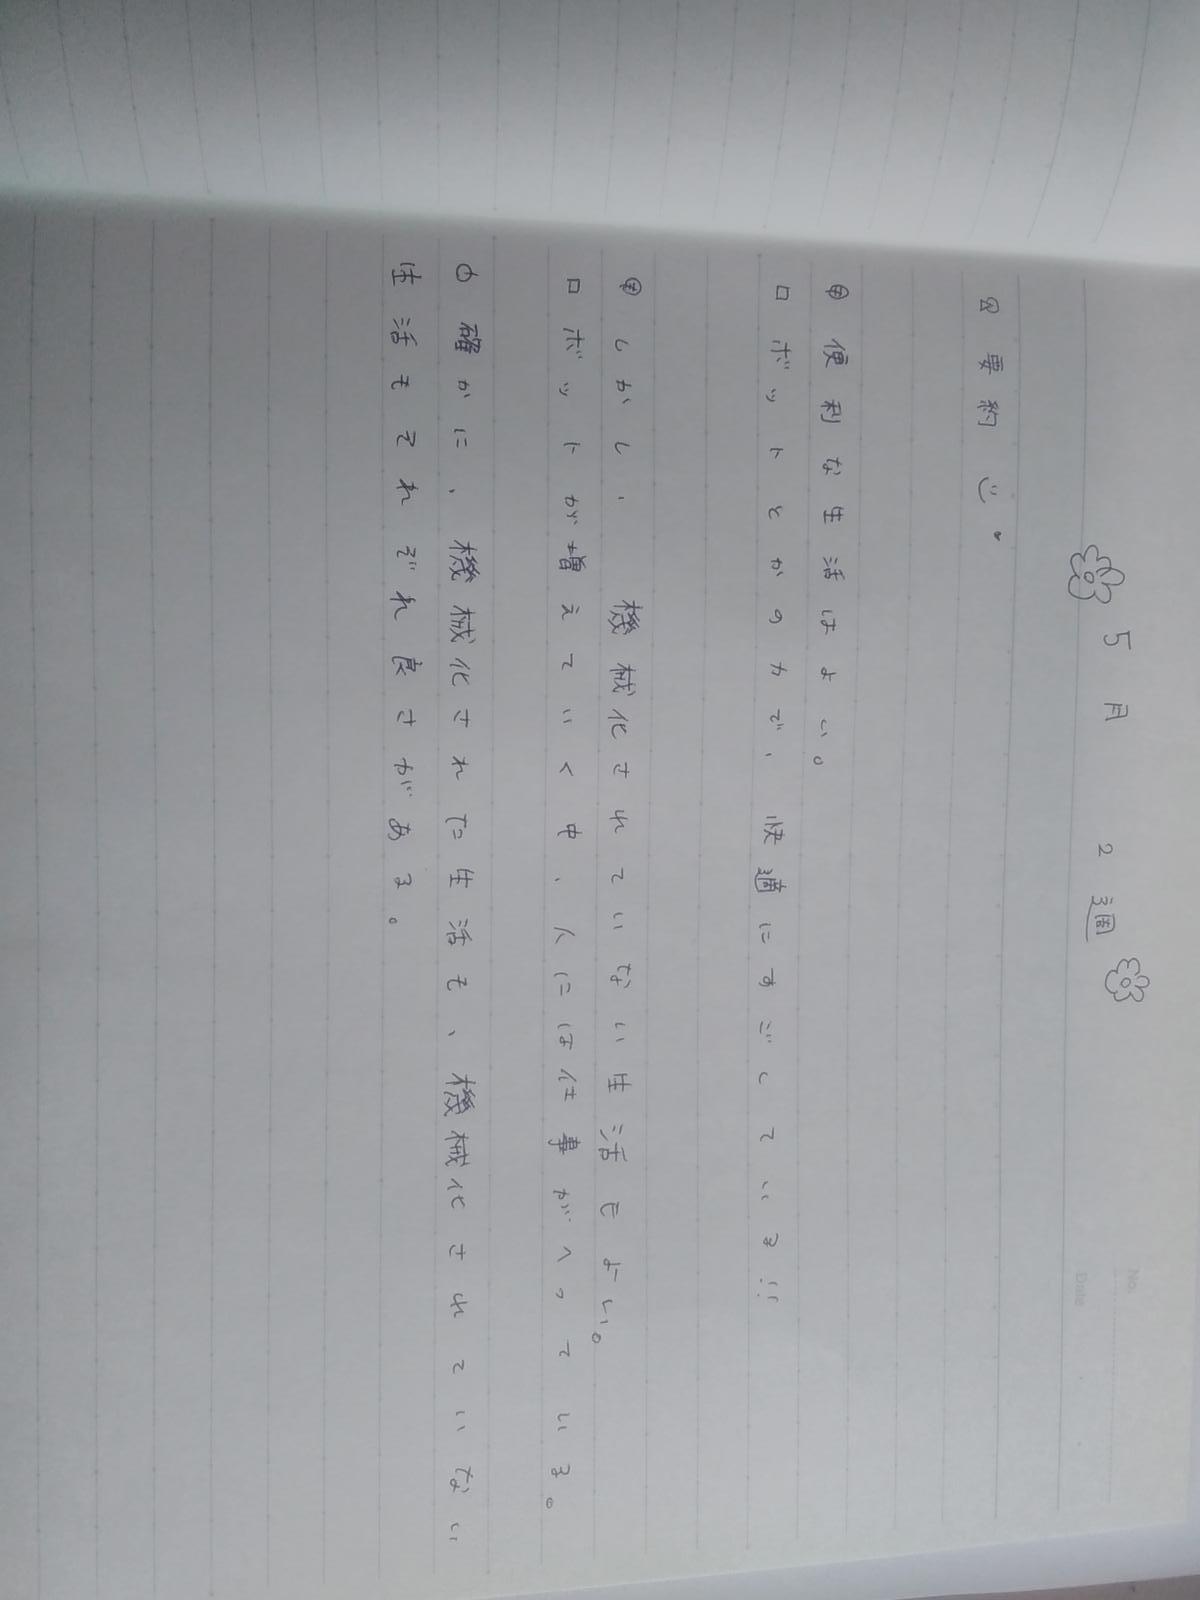 5月 2週
No.
Date
要約
便利な生活はよい。
ロボットとかの力で、快適にすごしている!!
しかし、機械化されていない生活もよい。
ロボットが増えていく中、人には仕事がへっている。
確かに、機械化された生活も、機械化されていない
生活もそれぞれ良さがある。